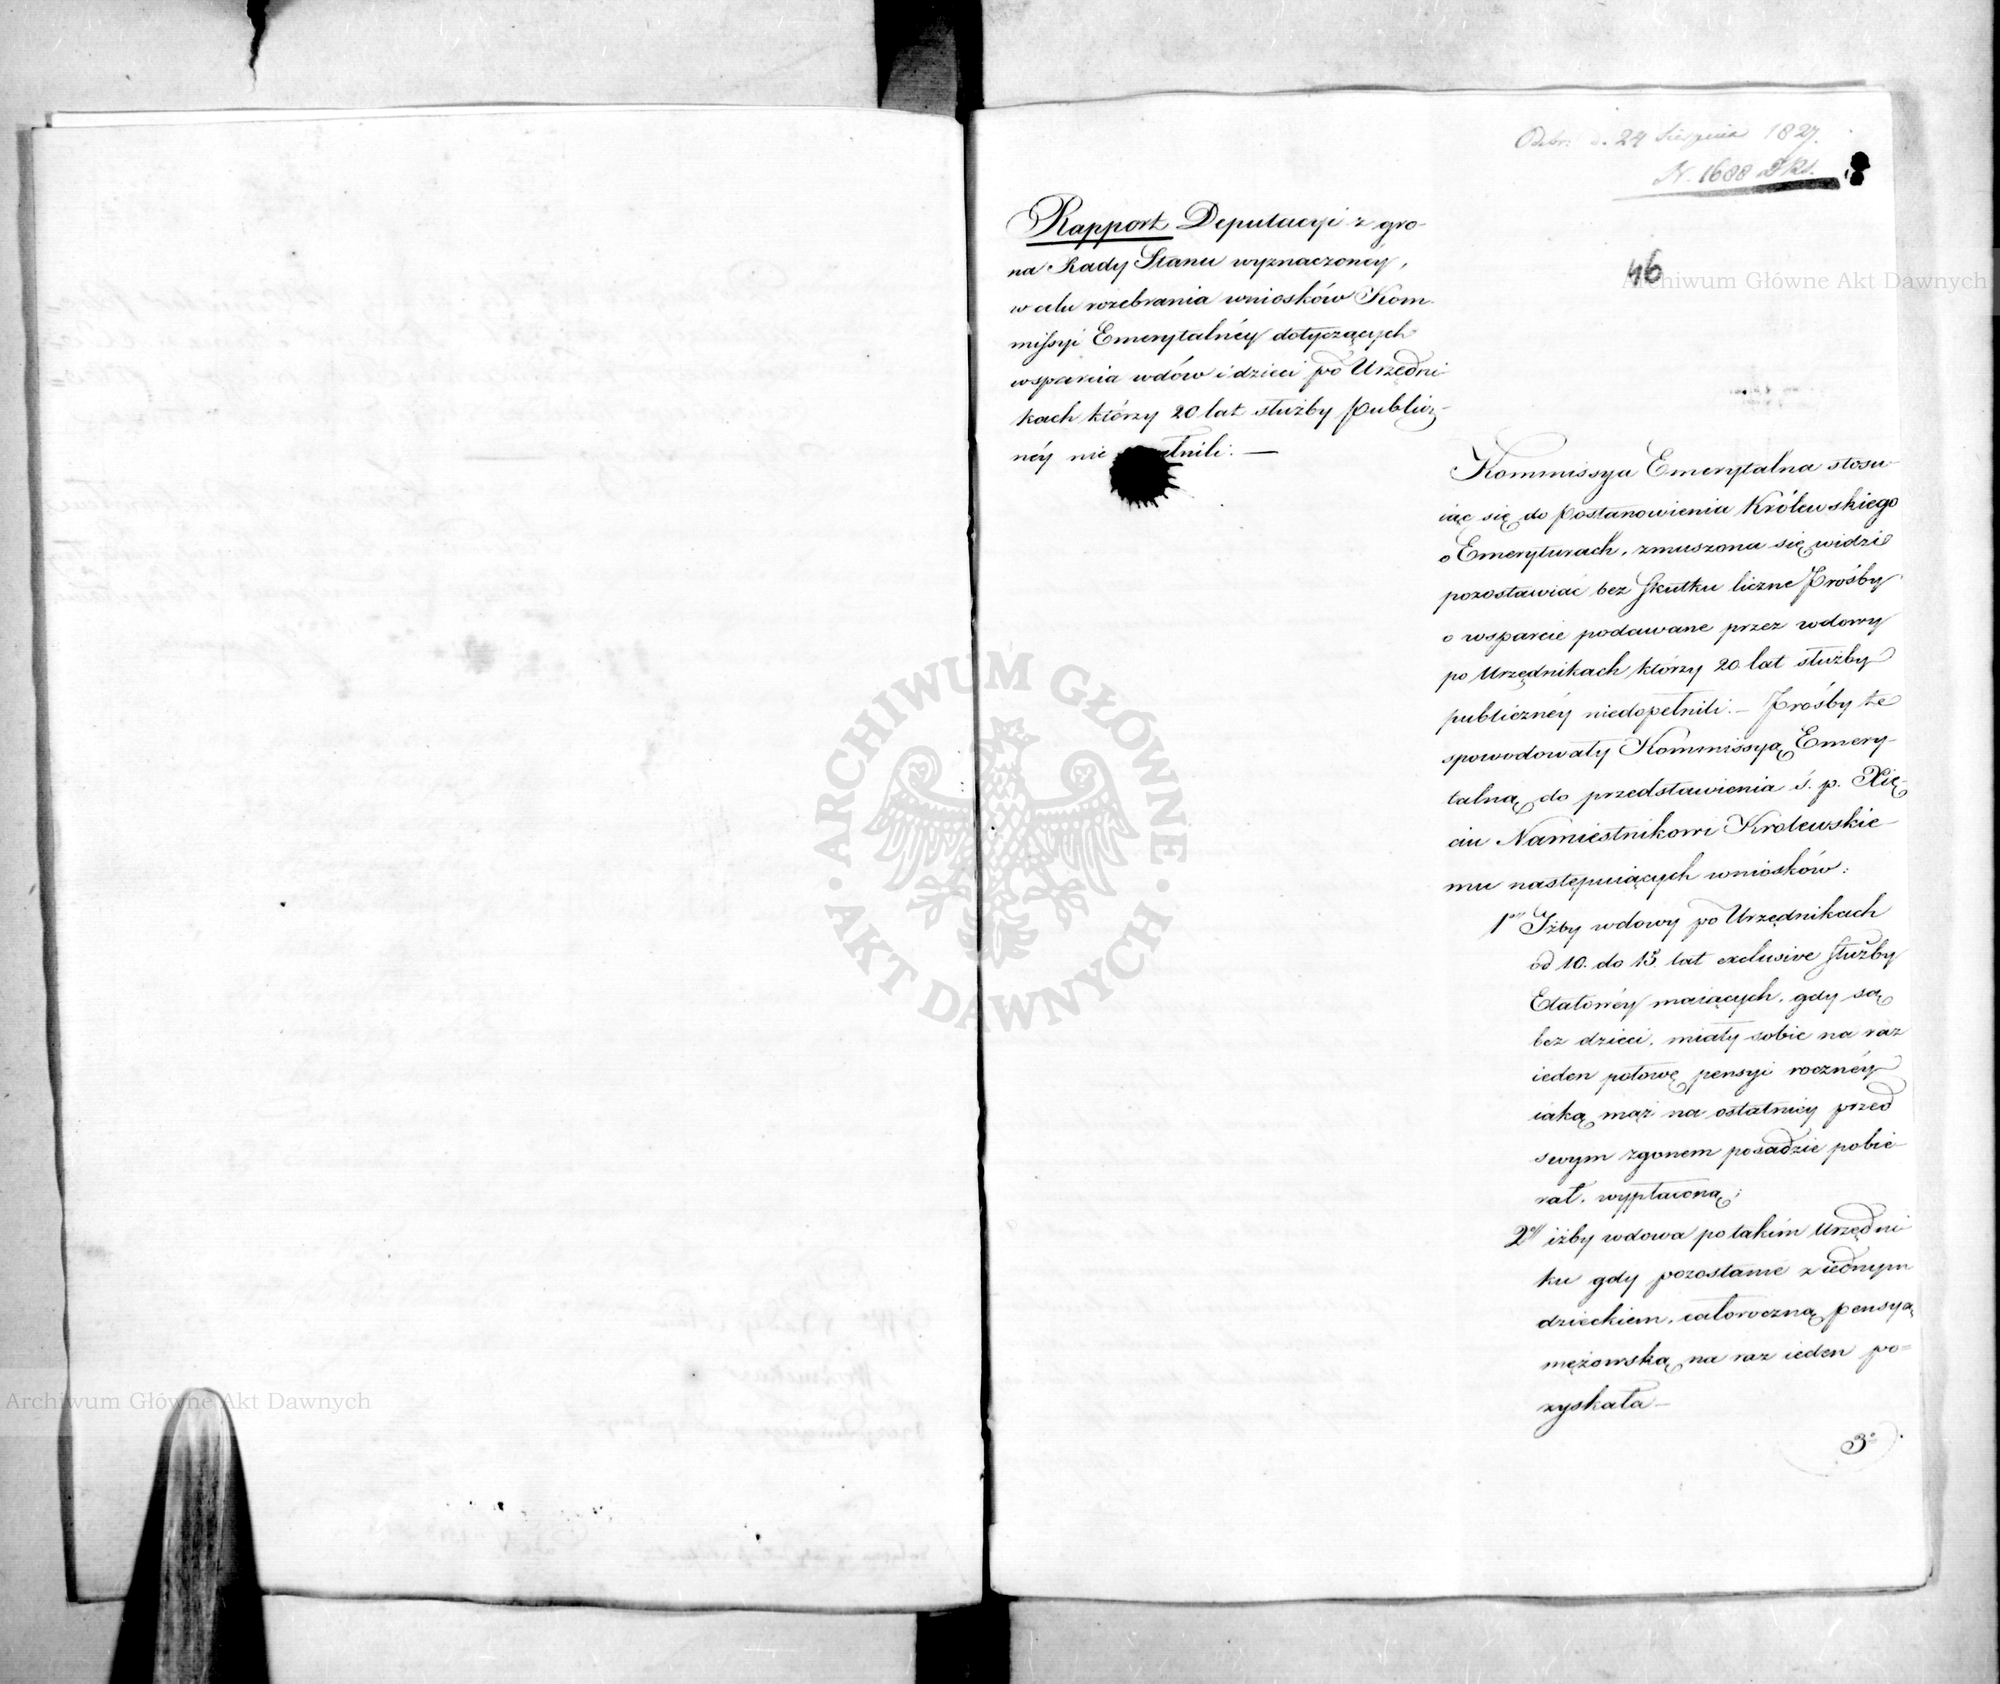 Odebr: d. 24 Sierpnia 1827.
N. 1688 DRS.
46
Rapport Deputacyi z gro-
na Rady Stanu wyznaczoney,
w celu rozebrania wniosków Kom
missyi Emerytalnéy dotyczących
wsparcia wdów i dzieci po Urzędni
kach którzy 20 lat służby publicz-
néy nie łnili. —
Kommissya Emerytalna stosu-
iąc się do Postanowienia Królewskiego
o Emeryturach, zmuszona się widzi
pozostawiać bez skutku liczne Prośby
o wsparcie podawane przez wdowy
po Urzędnikach którzy 20 lat służby
publicznéy niedopełnili. — Prośby te
spowodowały Kommissyą Emery-
talną do przedstawienia ś. p. Xię-
ciu Namiestnikowi Krolewskie-
mu następuiących wniosków:
1º Iżby wdowy po Urzędnikach
od 10. do 15. lat exclusive służby
Etatowéy maiących, gdy są
bez dzieci, miały sobie na raz
ieden połowę pensyi rocznéy
iaką mąż na ostatniey przed
swym zgonem posadzie pobie
rał, wypłaconą;
2º iżby wdowa po takim Urzędni
ku gdy pozostanie z iednym
dzieckiem, całoroczną pensyą
mężowską na raz ieden po=
zyskała —
3º
Archiwum Główne Akt Dawnych
Archiwum Główne Akt Dawnych
· ARCHIWUM GŁÓWNE · AKT DAWNYCH